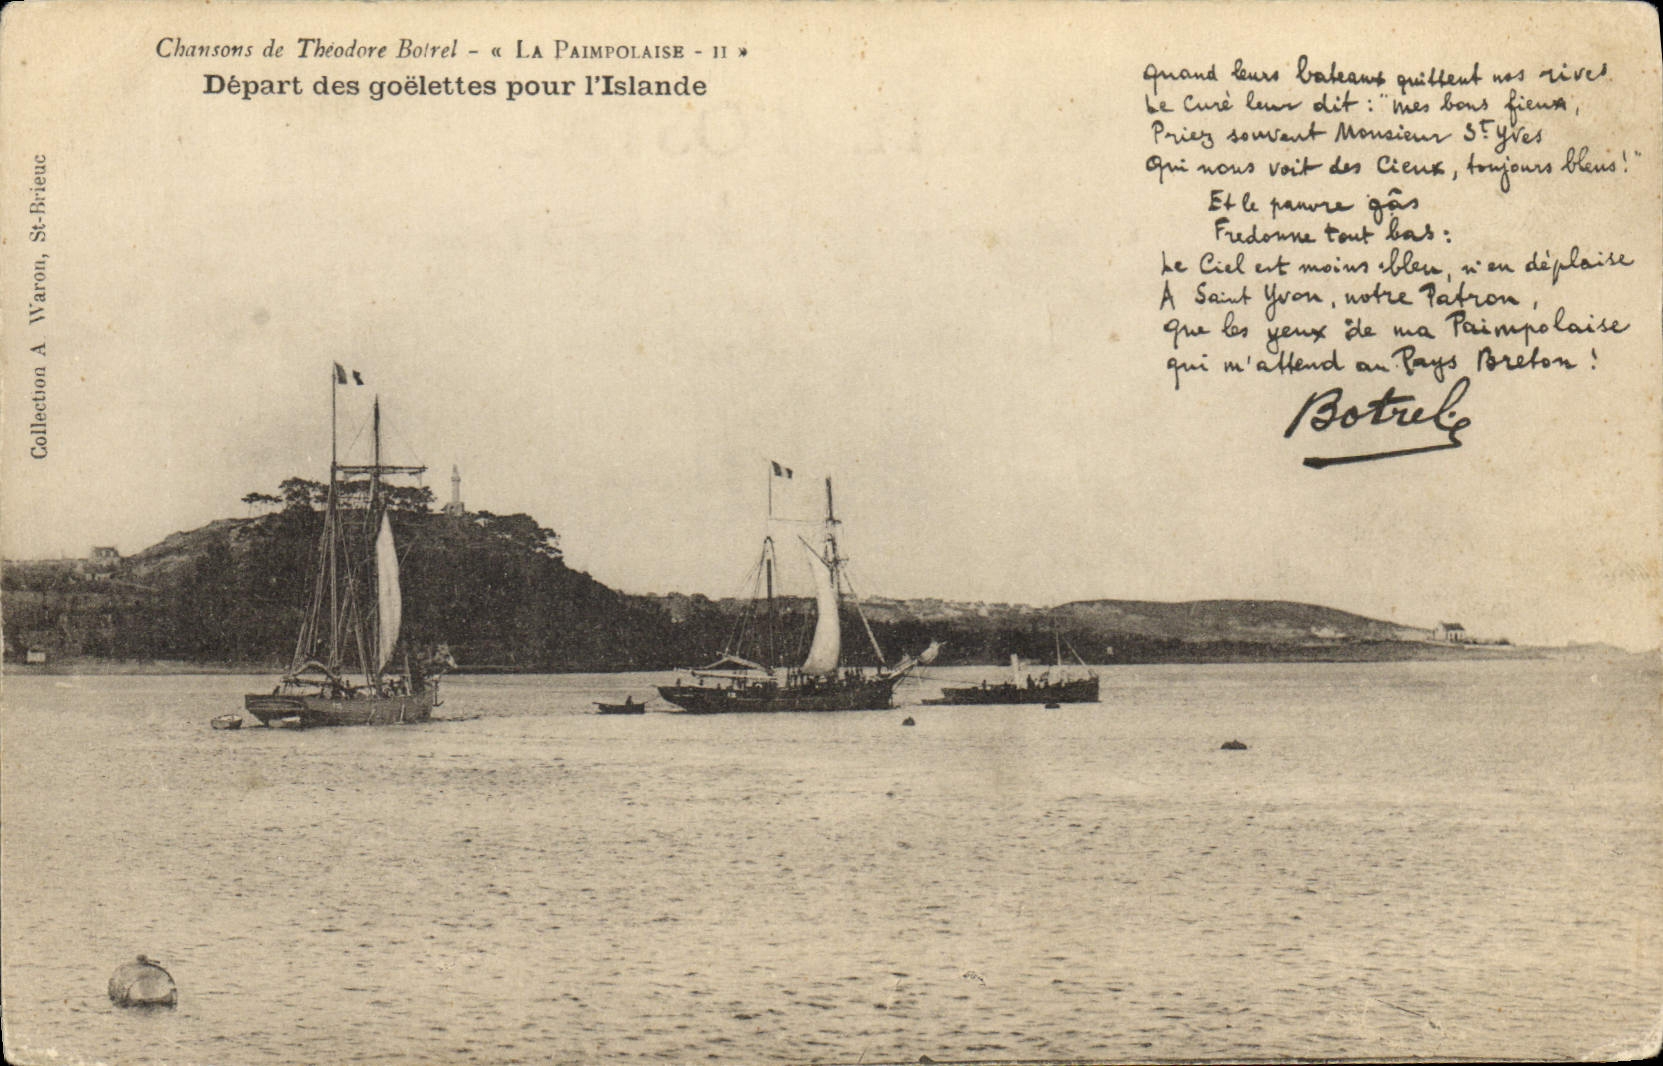 Chansons de Théodore Botrel - « LA PAIMPOLAISE - II »
Départ des goëlettes pour l'Islande
Collection A Waron, St-Brieuc
Quand leurs bateaux quittent nos rives
Le Curé leur dit : "Mes bons fieux,
Priez souvent Monsieur St Yves
Qui nous voit des Cieux, toujours bleus !"
Et le pauvre gâs
Fredonne tout bas :
Le Ciel est moins bleu, n'en déplaise
A Saint Yvon, notre Patron,
Que les yeux de ma Paimpolaise
qui m'attend au Pays Breton !
Botrel